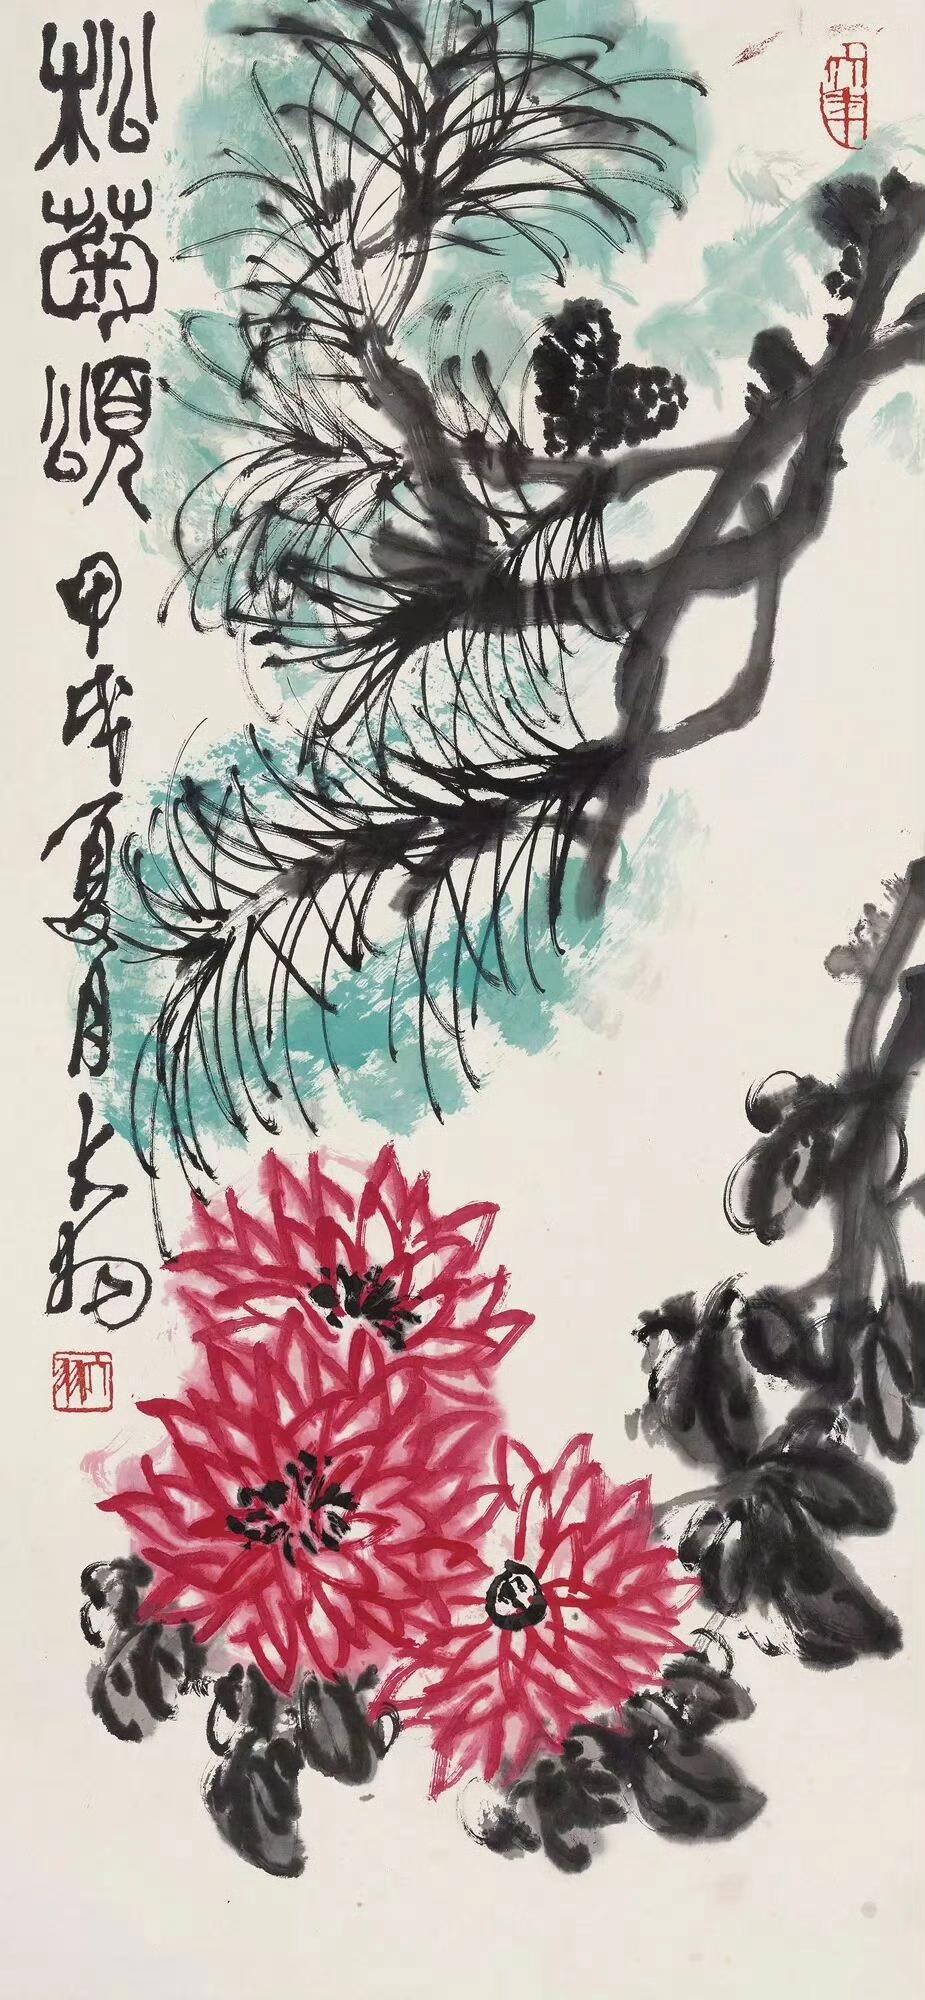 松菊頌
甲戌夏月大羽